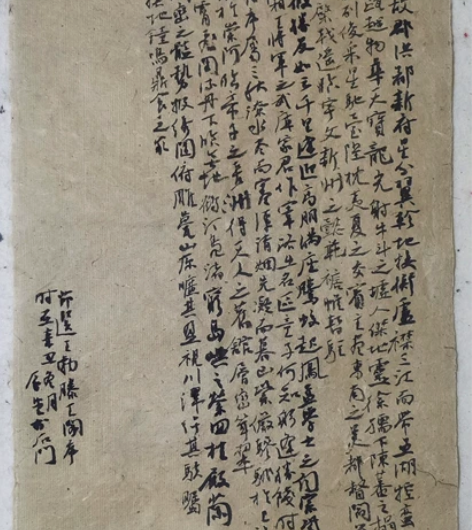 故郡洪都新府星分翼軫地接衡廬襟三江而帶五湖控蠻
甌越物華天寶龍光射牛斗之墟人傑地靈徐孺下陳蕃之榻
列俊采星馳臺隍枕夷夏之交賓主盡東南之美都督閻
棨戟遥臨宇文新州之懿範襜帷暫駐
假勝友如云千里逢迎高朋滿座騰蛟起鳳孟學士之詞宗紫
王將軍之武庫家君作宰路出名區童子何知躬逢勝餞時
序屬三秋潦水盡而寒潭清烟光凝而暮山紫儼驂騑於上
於崇阿臨帝子之長洲得天人之舊館層巒聳翠
霄飛閣流丹下臨無地鶴汀鳧渚窮島嶼之縈回桂殿蘭
巒之體勢披绣闥俯雕甍山原曠其盈視川澤紆其駭矚
撲地鐘鳴鼎食之家
節選王勃滕王閣序
時在辛丑